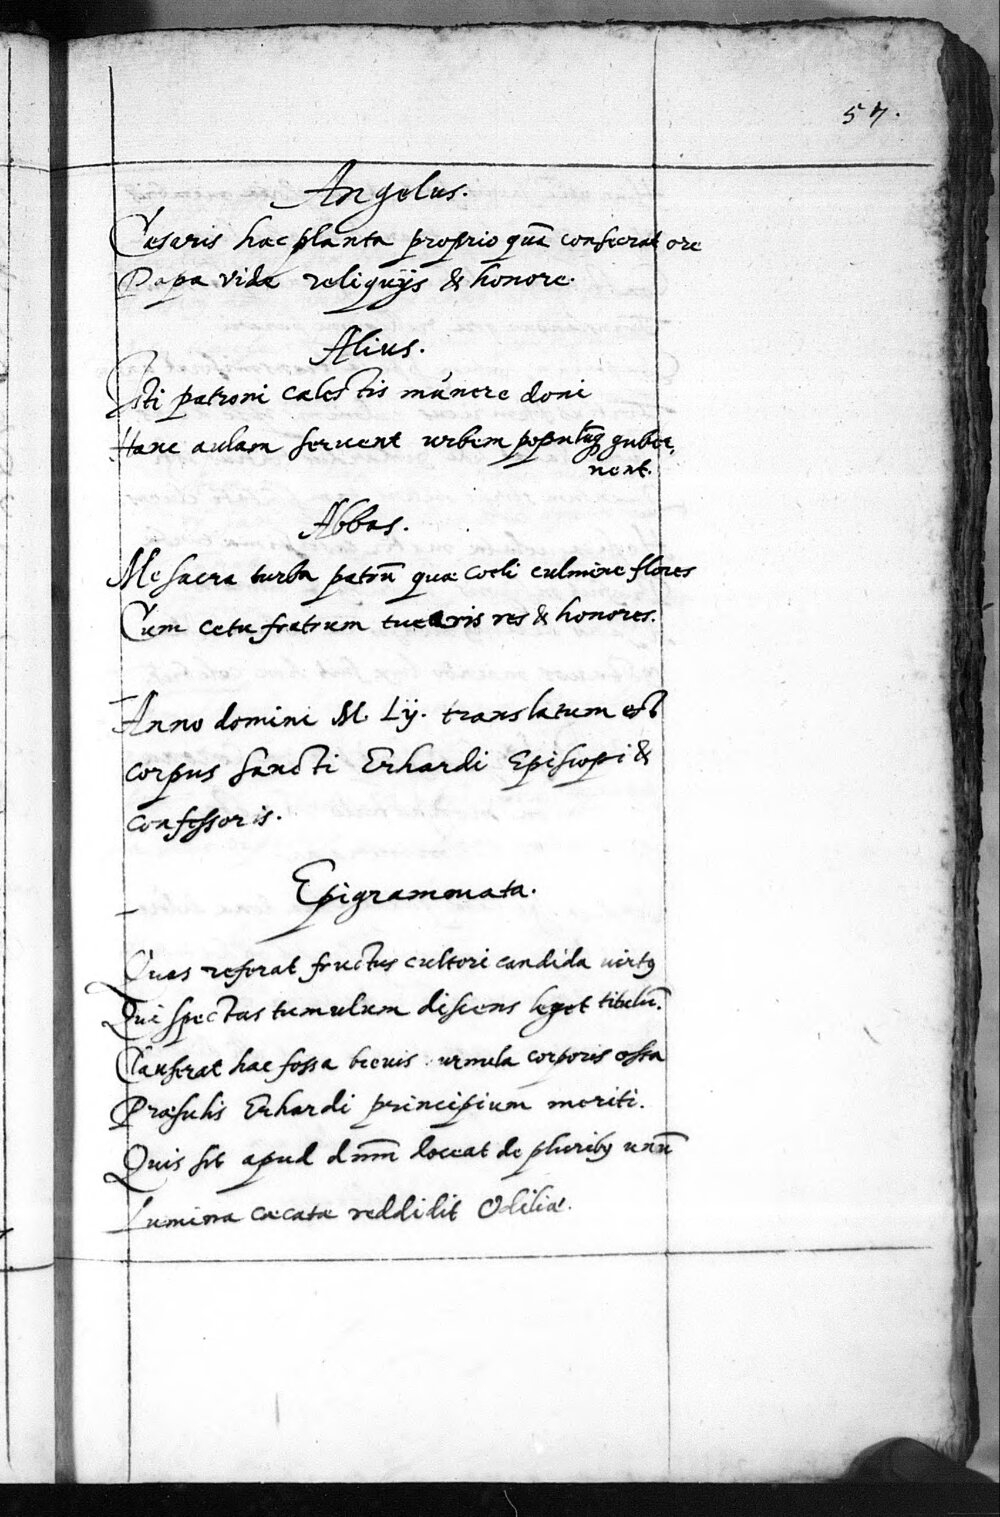 57.
Angelus.
Cesaris hac planta proprio quā consecrat ore
Papa vide reliquijs & honore.
Alius.
Isti patroni calestis munere doni
Hanc aulam seruent urbem populūq guber,
nent.
Abbas.
Me sacra turba patrū quæ coeli culmine flores
Cum cetu fratrum tuearis res & honores.
Anno domini M. Lij. translatum est
corpus sancti Erhardi Episcopi &
confessoris.
Epigrammata.
Quas reforat fructus cultori candida uirtꝰ
Qui spectas tumulum discens leget titulū.
Clauserat hac fossa breuis urnula corporis ossa
Præsulis Erhardi principium meriti.
Quis sit apud dnm̄ doceat de pluribꝰ unū
Lumina cæcatæ reddidit Odiliæ.